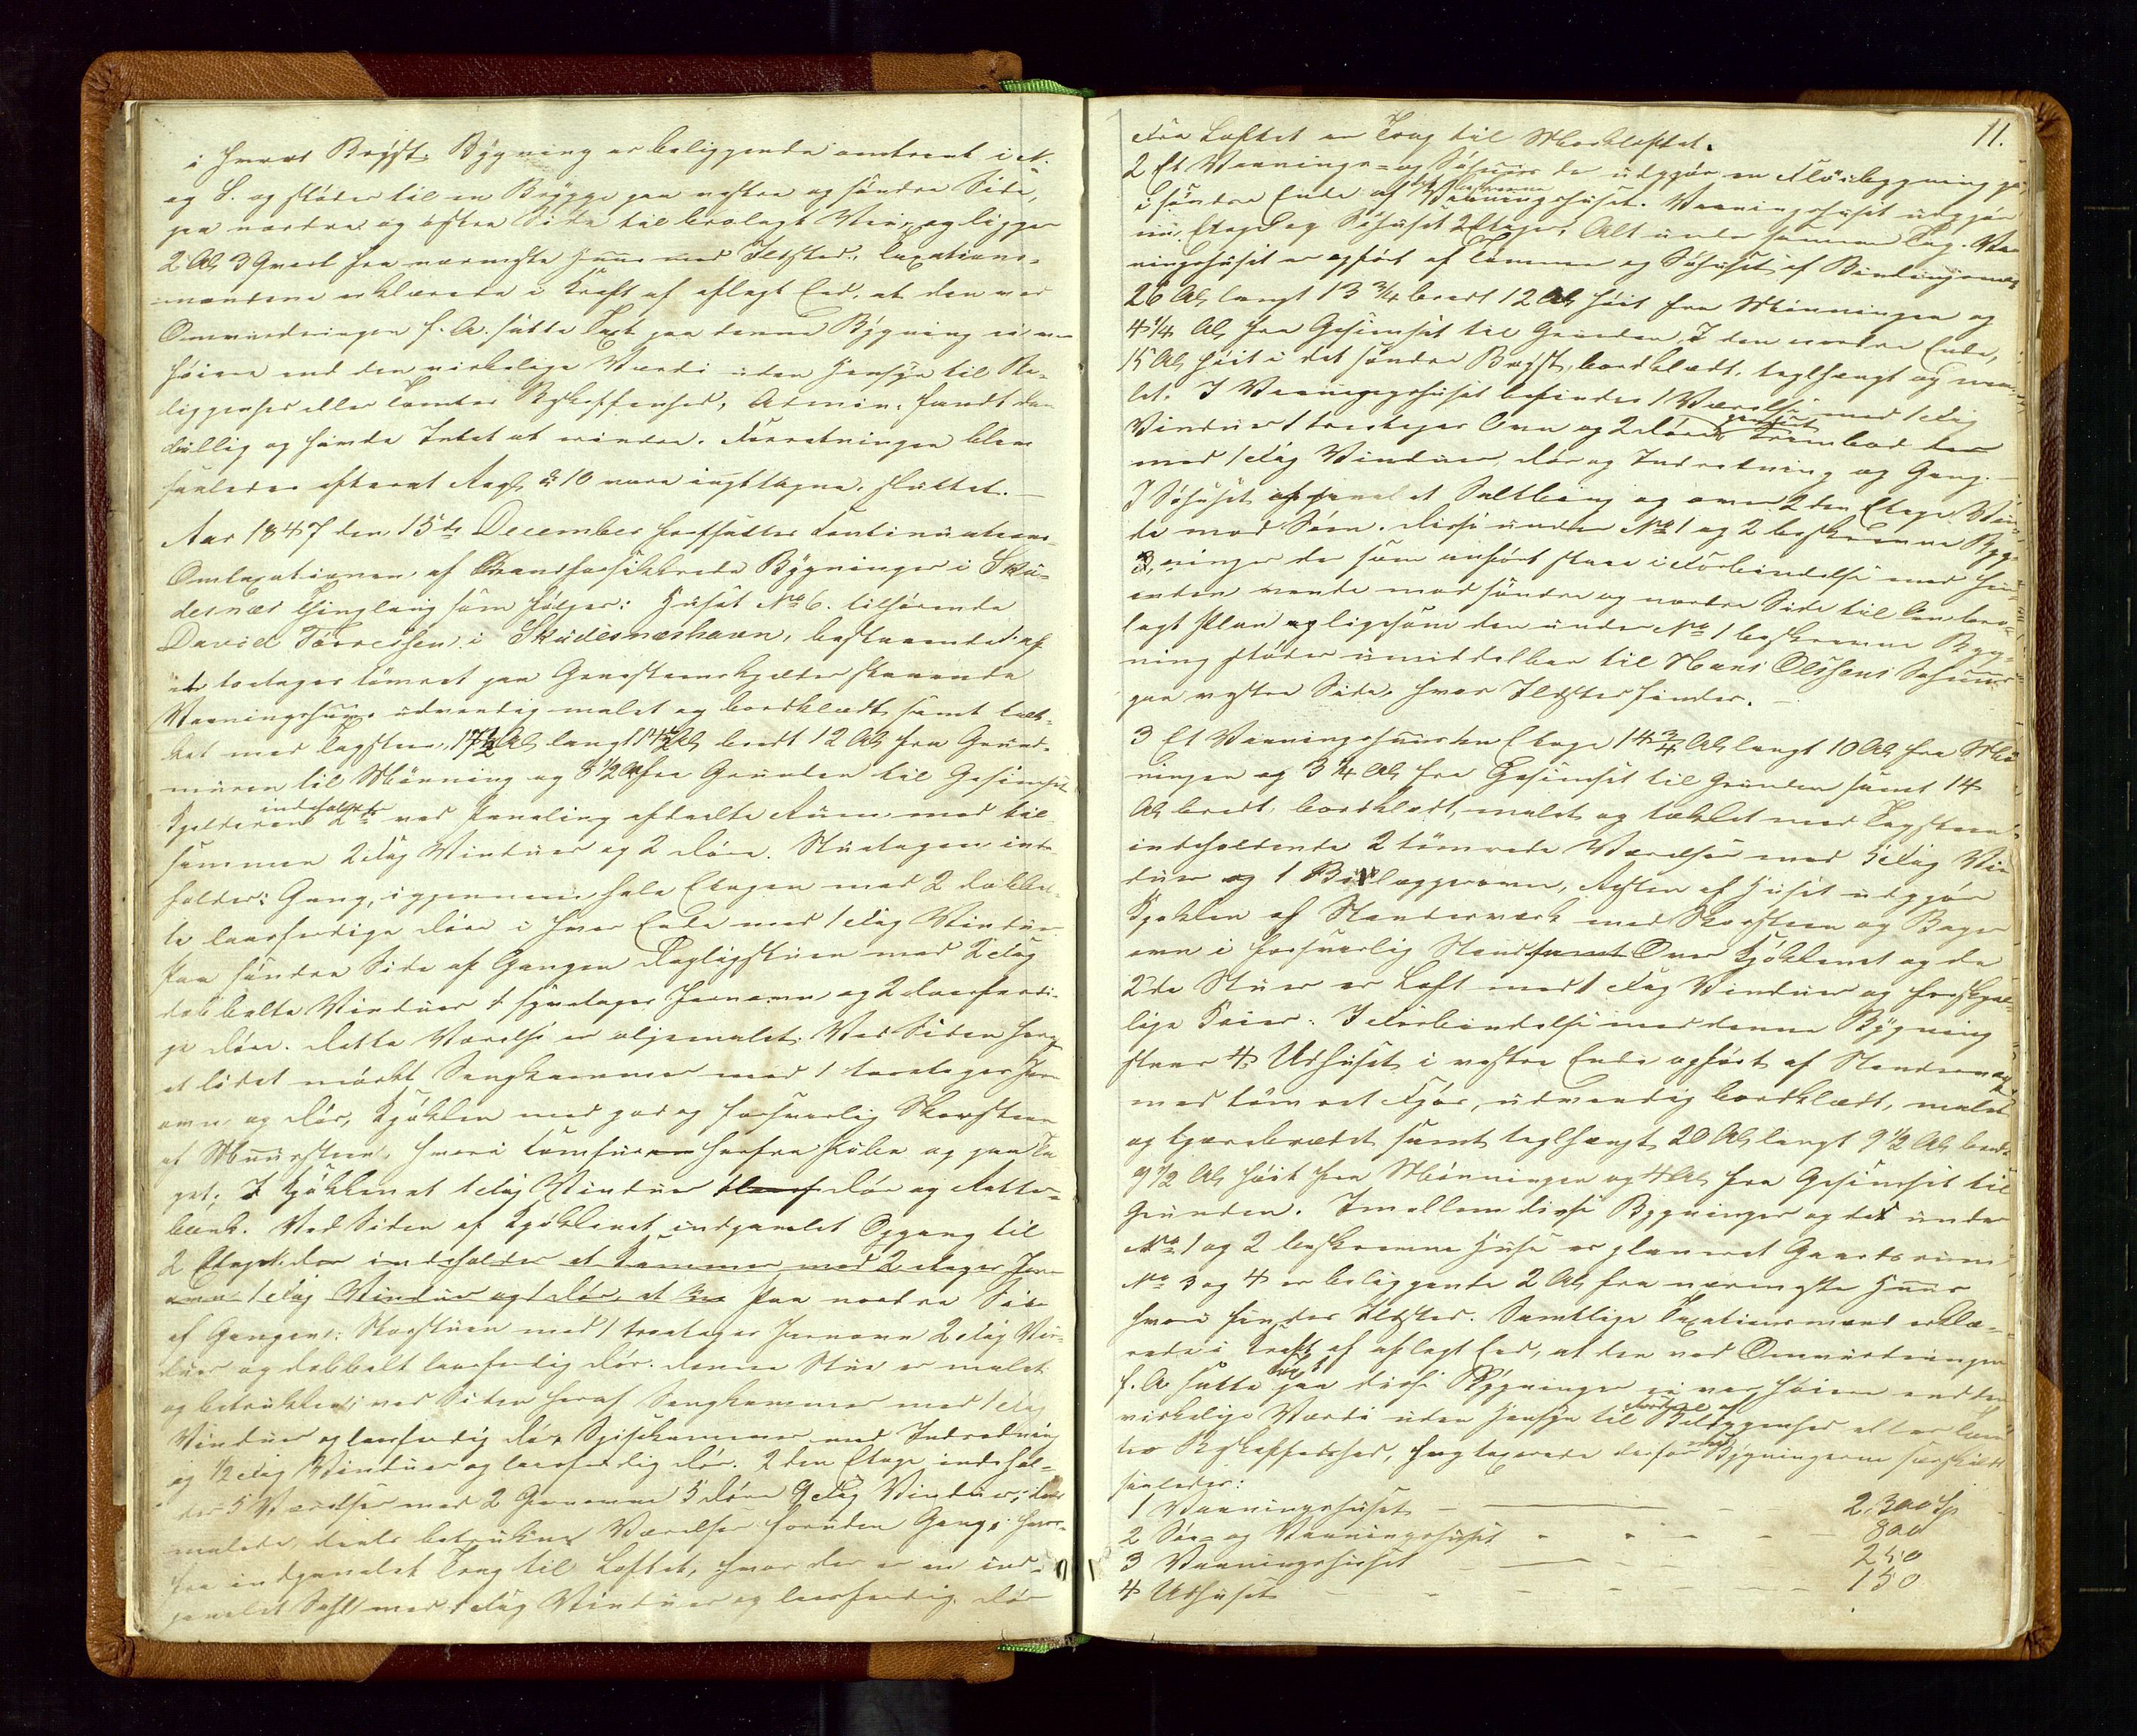 i hvert Bryst. Bygning er beliggende omtrent i N.
og S. og støder til en Brygge paa vestre og søndre Side,
paa nordre og østre Side til brolagt Vei, og ligger
2 Al 3 Qvart fra nærmeste Huus med Ildsted. Taxations-
mændene erklærede i Kraft af aflagt Eed, at den ved
Omvurderingen f. A. satte Taxt paa denne Bygning ei var
høiere end den virkelige Værdi uden Hensyn til Be-
liggenhed eller Tomtes Beskaffenhed; Admin. fandt den
billig og havde Intet at erindre. Forretningen blev
saaledes efterat Regl § 10 være iagttagne, sluttet. —
Aar 1847 den 15de December fortsattes Continuations-
Omtaxationen af Brandforsikkrede Bygninger i Sku-
desnæs Thinglaug som følger: Huset No 6. tilhørende
David Tørresen i Skudesnæshavn, bestaaende 1. af
toetages tømret paa Graasteenskjelder staaende
Vaaningshuus udvendig malet og bordklædt samt tæk-
ket med Tagsteen, 17½ Al langt 14½ Al bredt 12 Al fra Grund-
muren til Mønning og 8 1/2 Al fra Grunden til Gesimset
Kjelderen indeholder 2de ved Paneling afdeelte Rum med til-
sammen 2 Fag Vinduer og 2 Døre. Stuetagen inde-
holder: Gang, igjennem hele Etagen med 2 dobbel-
te laasfærdige Døre i hver Ende med 1 Fag Vinduer
Paa søndre Side af Gangen Dagligstuen med 2 Fag
dobbelte Vinduer 1 Jernovn og 2 laasfærdi-
ge Døre. Dette Værelse er oljemalet. Ved Siden heraf
et lidet mørkt Sengkammer med 1 toetages Jern
ovn og Dør, Kjøkken med god og forsvarlig Skorsteen
af Muursteen, hvori Comfur og paa Ta-
get; I Kjøkkenet 1 Fag Vinduer Dør og Rette-
bænk. Ved Siden af Kjøkkenet indpanelet Opgang til
2 Etage der indeholder et Kammer med 2 etages Jern
ovn 1 Fag Vinduer og 1 Dør, et Paa nordre Side
af Gangen: Storstuen med 1 treetages Jernovn 2 Fag Vin-
duer og dobbelt laasfærdig Dør. Denne Stue er malet
og betrukken; ved Siden heraf Sengkammer med 1 Fag
Vinduer og laasfærdig Dør, Spisekammer med Indredning
og 1/2 Fag Vinduer og laasfærdig Dør. 2den Etage indehol-
der 5 Værelser med 2 Jernovne 5 Døre 9 Fag Vinduer; deels
malede, deels betrukne Værelser foruden Gang, hvor-
fra indpanelet Trap til Loftet, hvor der er en ind-
panelet Sahl med 1 Fag Vinduer og laasfærdig Dør
11.
Fra Loftet en Trap til Mørkloftet.
2 Et Vaanings- og Søhuus der udgjør en Fløibygning paa
i søndre Ende af det beskrevne Vaaningshuset. Vaaningshuset udgjør
een Etage og Søhuset 2 Etager, Alt under samme Tag. Vaa
ningshuset er opført af Tømmer og Søhuset af Bindingsværk
26 Al langt 13 3/4 bredt 12 Al høit fra Mønningen og
4 1/4 Al fra Gesimset til Grunden I den nordre Ende,
15 Al høit i det søndre Bryst, bordklædt, teglhængt og ma-
let. I Vaaningshuset befindes 1 Værelse med 1 Fag
Vinduer 1 treetages Ovn og 2 Døre, Krambod
med 1 Fag Vinduer, Dør og Indredning og Gang. —
I Søhuset et Saltbing og oven 2den Etage Vin-
de mod Søen. Disse under No 1 og 2 beskrevne Byg-
ninger der som anført staae i Forbindelse med hin-
anden vende mod søndre og nordre Side til en bro-
lagt Plan og ligesom den under No 1 beskrevne Byg-
ning støder umiddelbar til Hans Olssens Søhuus
paa vestre Side, hvor Ildsted findes. —
3 Et Vaaningshuus een Etage 14 3/4 Al langt 10 Al fra Møn
ningen og 3 1/4 Al fra Gesimset til Grunden samt 14
Al bredt, bordklædt, malet og tækket med Tagsteen
indeholdende 2 tømrede Værelser med 5 Fag Vin
duer og 1 Bilæggerovn, Resten af Huset udgjør
Kjøkken af Standerværk med Skorsteen og Bager
ovn i forsvarlig Stand samt Over Kjøkkenet og de
2de Stuer er Loft med 1 Fag Vinduer og forskjel-
lige Køier. I Forbindelse med denne Bygning
staaer 4 Udhuset i vestre Ende opført af Standerværk
med tømret Fjøs, udvendig bordklædt, malet
og tjærebrædet samt teglhængt 20 Al langt 9 1/2 Al bredt
9 1/2 Al høit fra Mønningen og 4 Al fra Gesimset til
Grunden. Imellem disse Bygninger og det under
No 1 og 2 beskrevne Huse er planeret Gaardsrum,
No 3 og 4 er beliggende 2 Al fra nærmeste Huus
hvori findes Ildsted. Samtlige Taxationsmænd erklæ-
rede i Kraft af aflagt Eed, at den ved Omvurderingen
f. A. satte Taxt paa disse Bygninger ei var høiere end den
virkelige Værdi uden Hensyn til Fordeel af Beliggenhed eller Tom
tes Beskaffenhed, og taxerede derfor Bygningerne særskildt
saaledes:
1 Vaaningshuset — — 2,300 Sp
2 Søe- og Vaaningshuset - - - - — 800
3 Vaaningshuset - — - - — 250
4 Udhuset - - - - - - 150